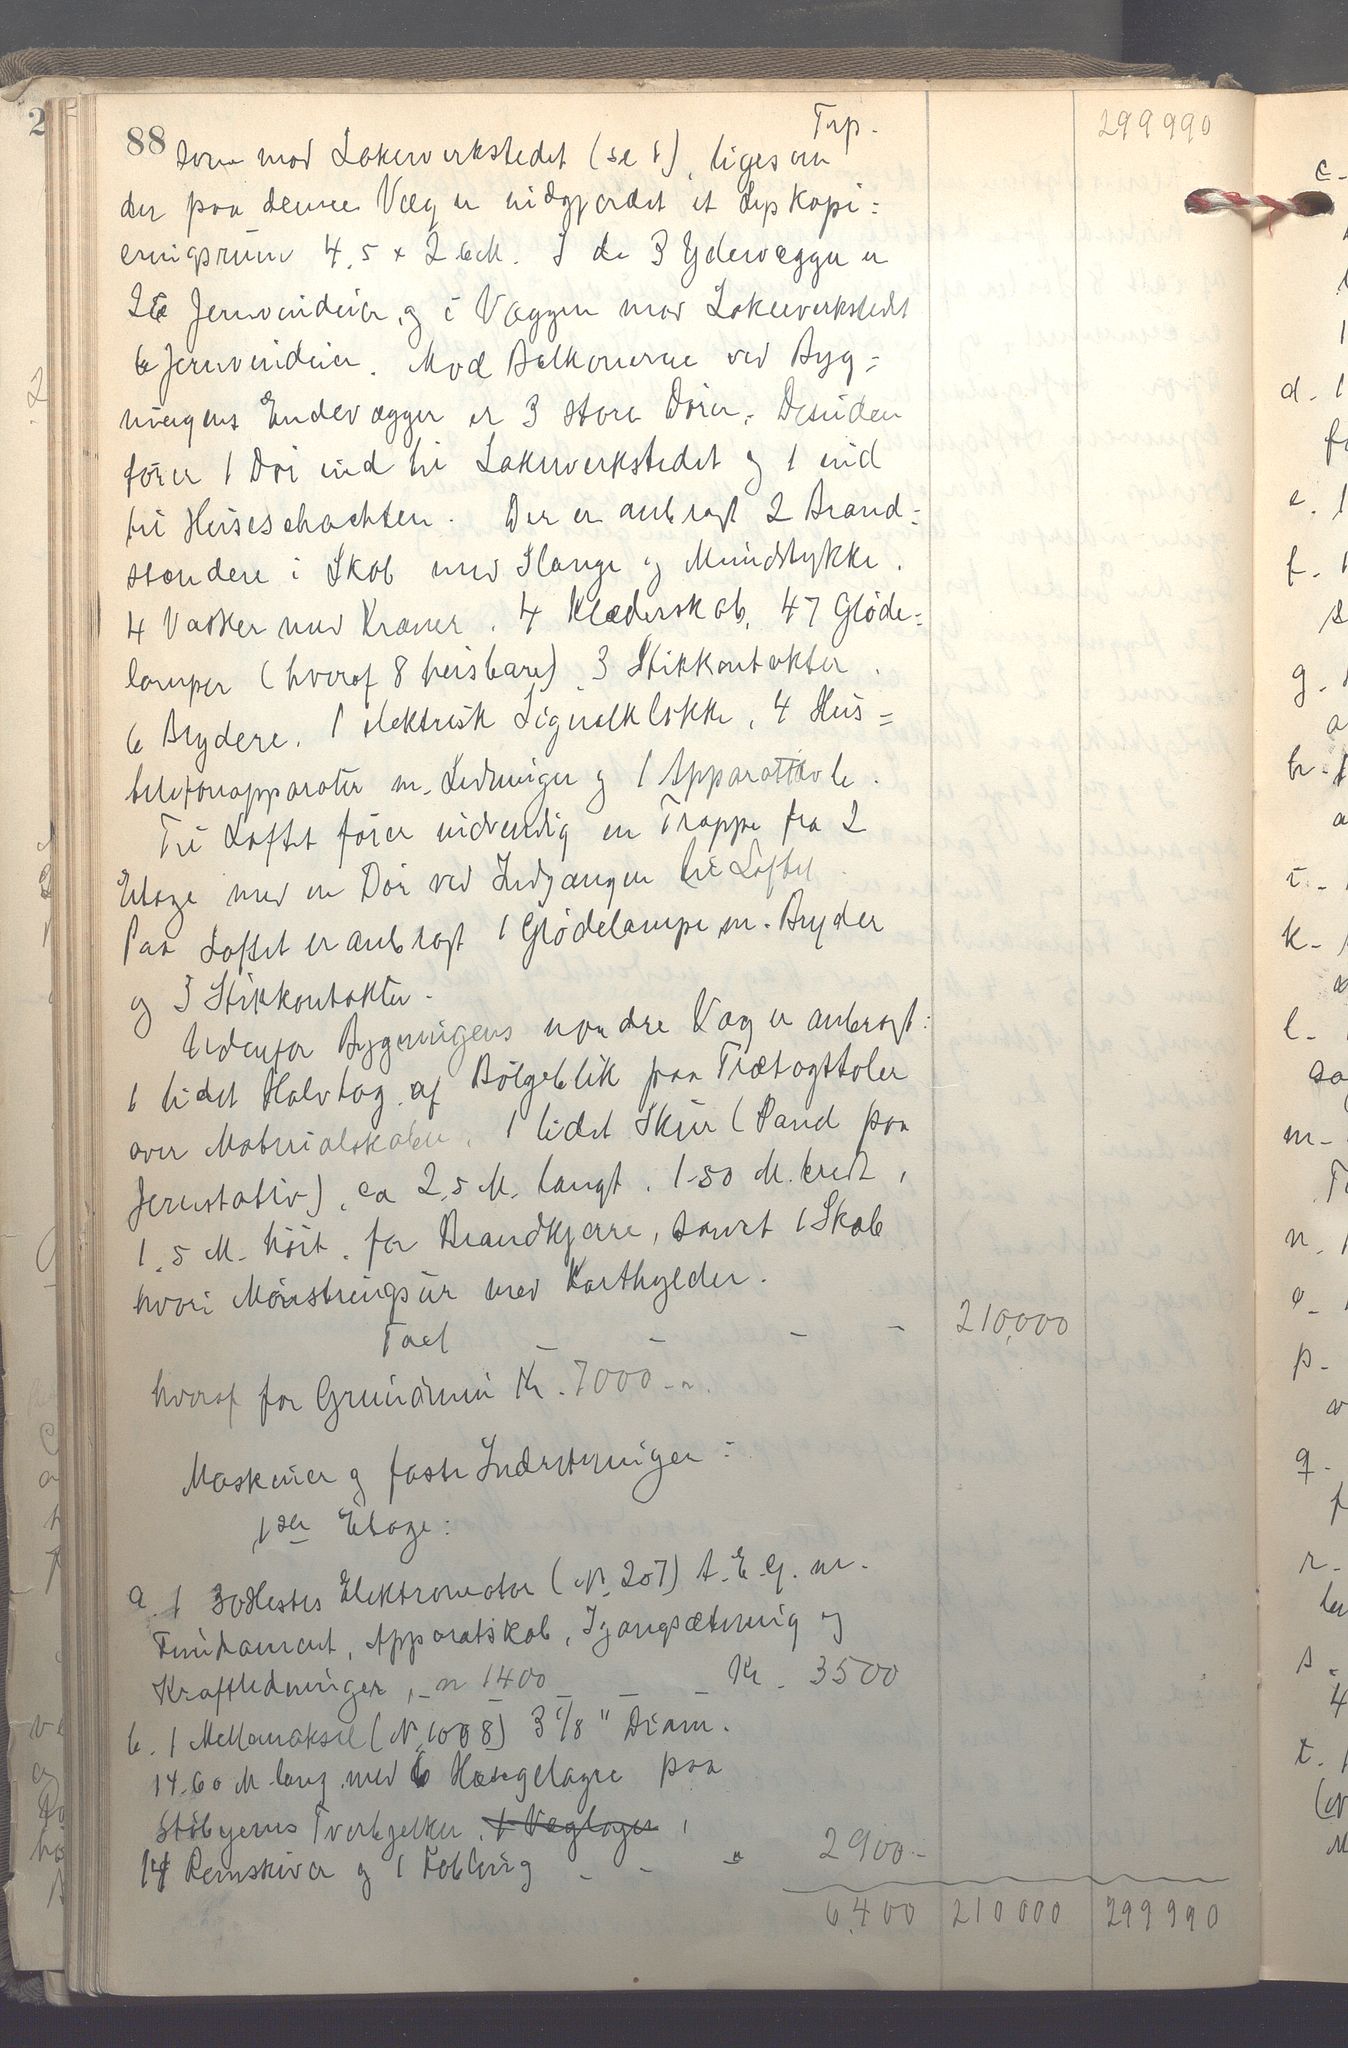 88
Trp. 299990
som mod Lakerverkstedet (se f), ligesom
der paa denne Væg er indgjerdet et Lyskopi=
eringsrum 4,5 x 2,6 M. I de 3 Ydervægger er
26 Jernvinduer, og i Væggen mod Lakerverkstedet
6 Jernvinduer. Mod Balkonerne ved Byg=
ningens Endevægger er 3 store Dører. Desuden
fører 1 Dør ind til Lakerverkstedet og 1 ind
til Heiseschachten. Der er anbragt 2 Brand=
standere i Skab med Slange og Mundstykke.
4 Vasker med Kraner. 4 Klæderskab, 47 Gløde=
lamper (hvoraf 8 heisbare). 3 Stikkontakter.
6 Brydere. 1 elektrisk Signalklokke, 4 Hus=
telefonapparater m. Ledninger og 1 Apparattavle.
Til Loftet fører indvendig en Trappe fra 2
Etage med en Dør ved Indgangen til Loftet.
Paa Loftet er anbragt 1 Glødelampe m. Bryder
og 3 Stikkontakter.
Udenfor Bygningens nordre Væg er anbragt:
1 lidet Halvtag af Bølgeblik paa Trætagstoler
over Materialskabe, 1 lidet Skur (Pand paa
Jernstativ), ca 2,5 M. langt, 1.50 M. bredt,
1,5 M. høit, for Brandkjerre, samt 1 Skab
hvori Mønstringsur med Korthylder.
Taxt - - - - 210,000
hvoraf for Grundmur Kr. 7000.-
Maskiner og faste Indretninger:
1ste Etage:
a. 1 30 Hestes Elektromotor (N. 207) A.E.G. m.
Fundament, Apparatskab, Igangsætning og
Kraftledninger, n 1400 - - - Kr. 3500
b. 1 Mellemaksel (N. 1008) 3 1/8" Diam.
14.60 M. lang med 6 Hængelagre paa
Støbejerns Tverbjelker, 1 Væglager,
14 Remskiver og 1 Kobling - - " 2900.-
6,400 210000 299990
c.
d. 1
e. 1
f.
g.
h.
i.
k.
l.
m.
n.
o.
p.
q.
r.
s.
t.